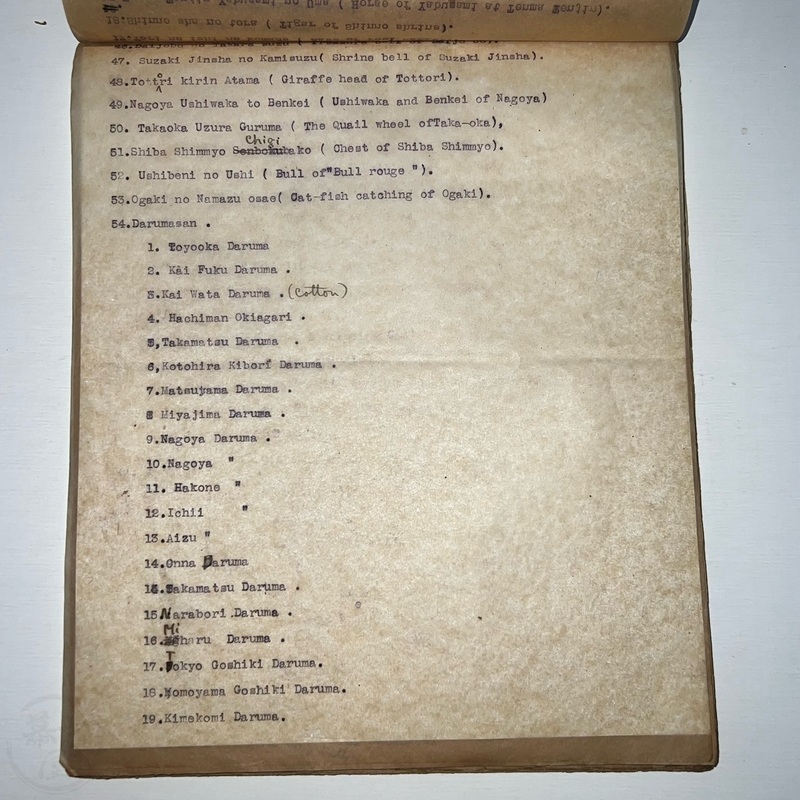 47. Suzaki Jinsha no Kamisuzu( Shrine bell of Suzaki Jinsha).
48.Tottori kirin Atama ( Giraffe head of Tottori).
49.Nagoya Ushiwaka to Benkei ( Ushiwaka and Benkei of Nagoya)
50. Takaoka Uzura Guruma ( The Quail wheel ofTaka-oka),
Chigi
51.Shiba Shimmyo Senbokubako ( Chest of Shiba Shimmyo).
52. Ushibeni no Ushi ( Bull of"Bull rouge ").
53.Ogaki no Namazu osae( Cat-fish catching of Ogaki).
54.Darumasan .
1. Toyooka Daruma
2. Kai Fuku Daruma .
3.Kai Wata Daruma .(cotton)
4. Hachiman Okiagari .
5,Takamatsu Daruma .
6,Kotohira Kibori Daruma .
7.Matsuyama Daruma .
8 Miyajima Daruma .
9.Nagoya Daruma .
10.Nagoya "
11. Hakone "
12.Ichii "
13.Aizu "
14.Onna Daruma
15.Takamatsu Daruma .
15.Narabori .Daruma .
16.Miharu Daruma .
17.Tokyo Goshiki Daruma.
18.Momoyama Goshiki Daruma.
19.Kimekomi Daruma.